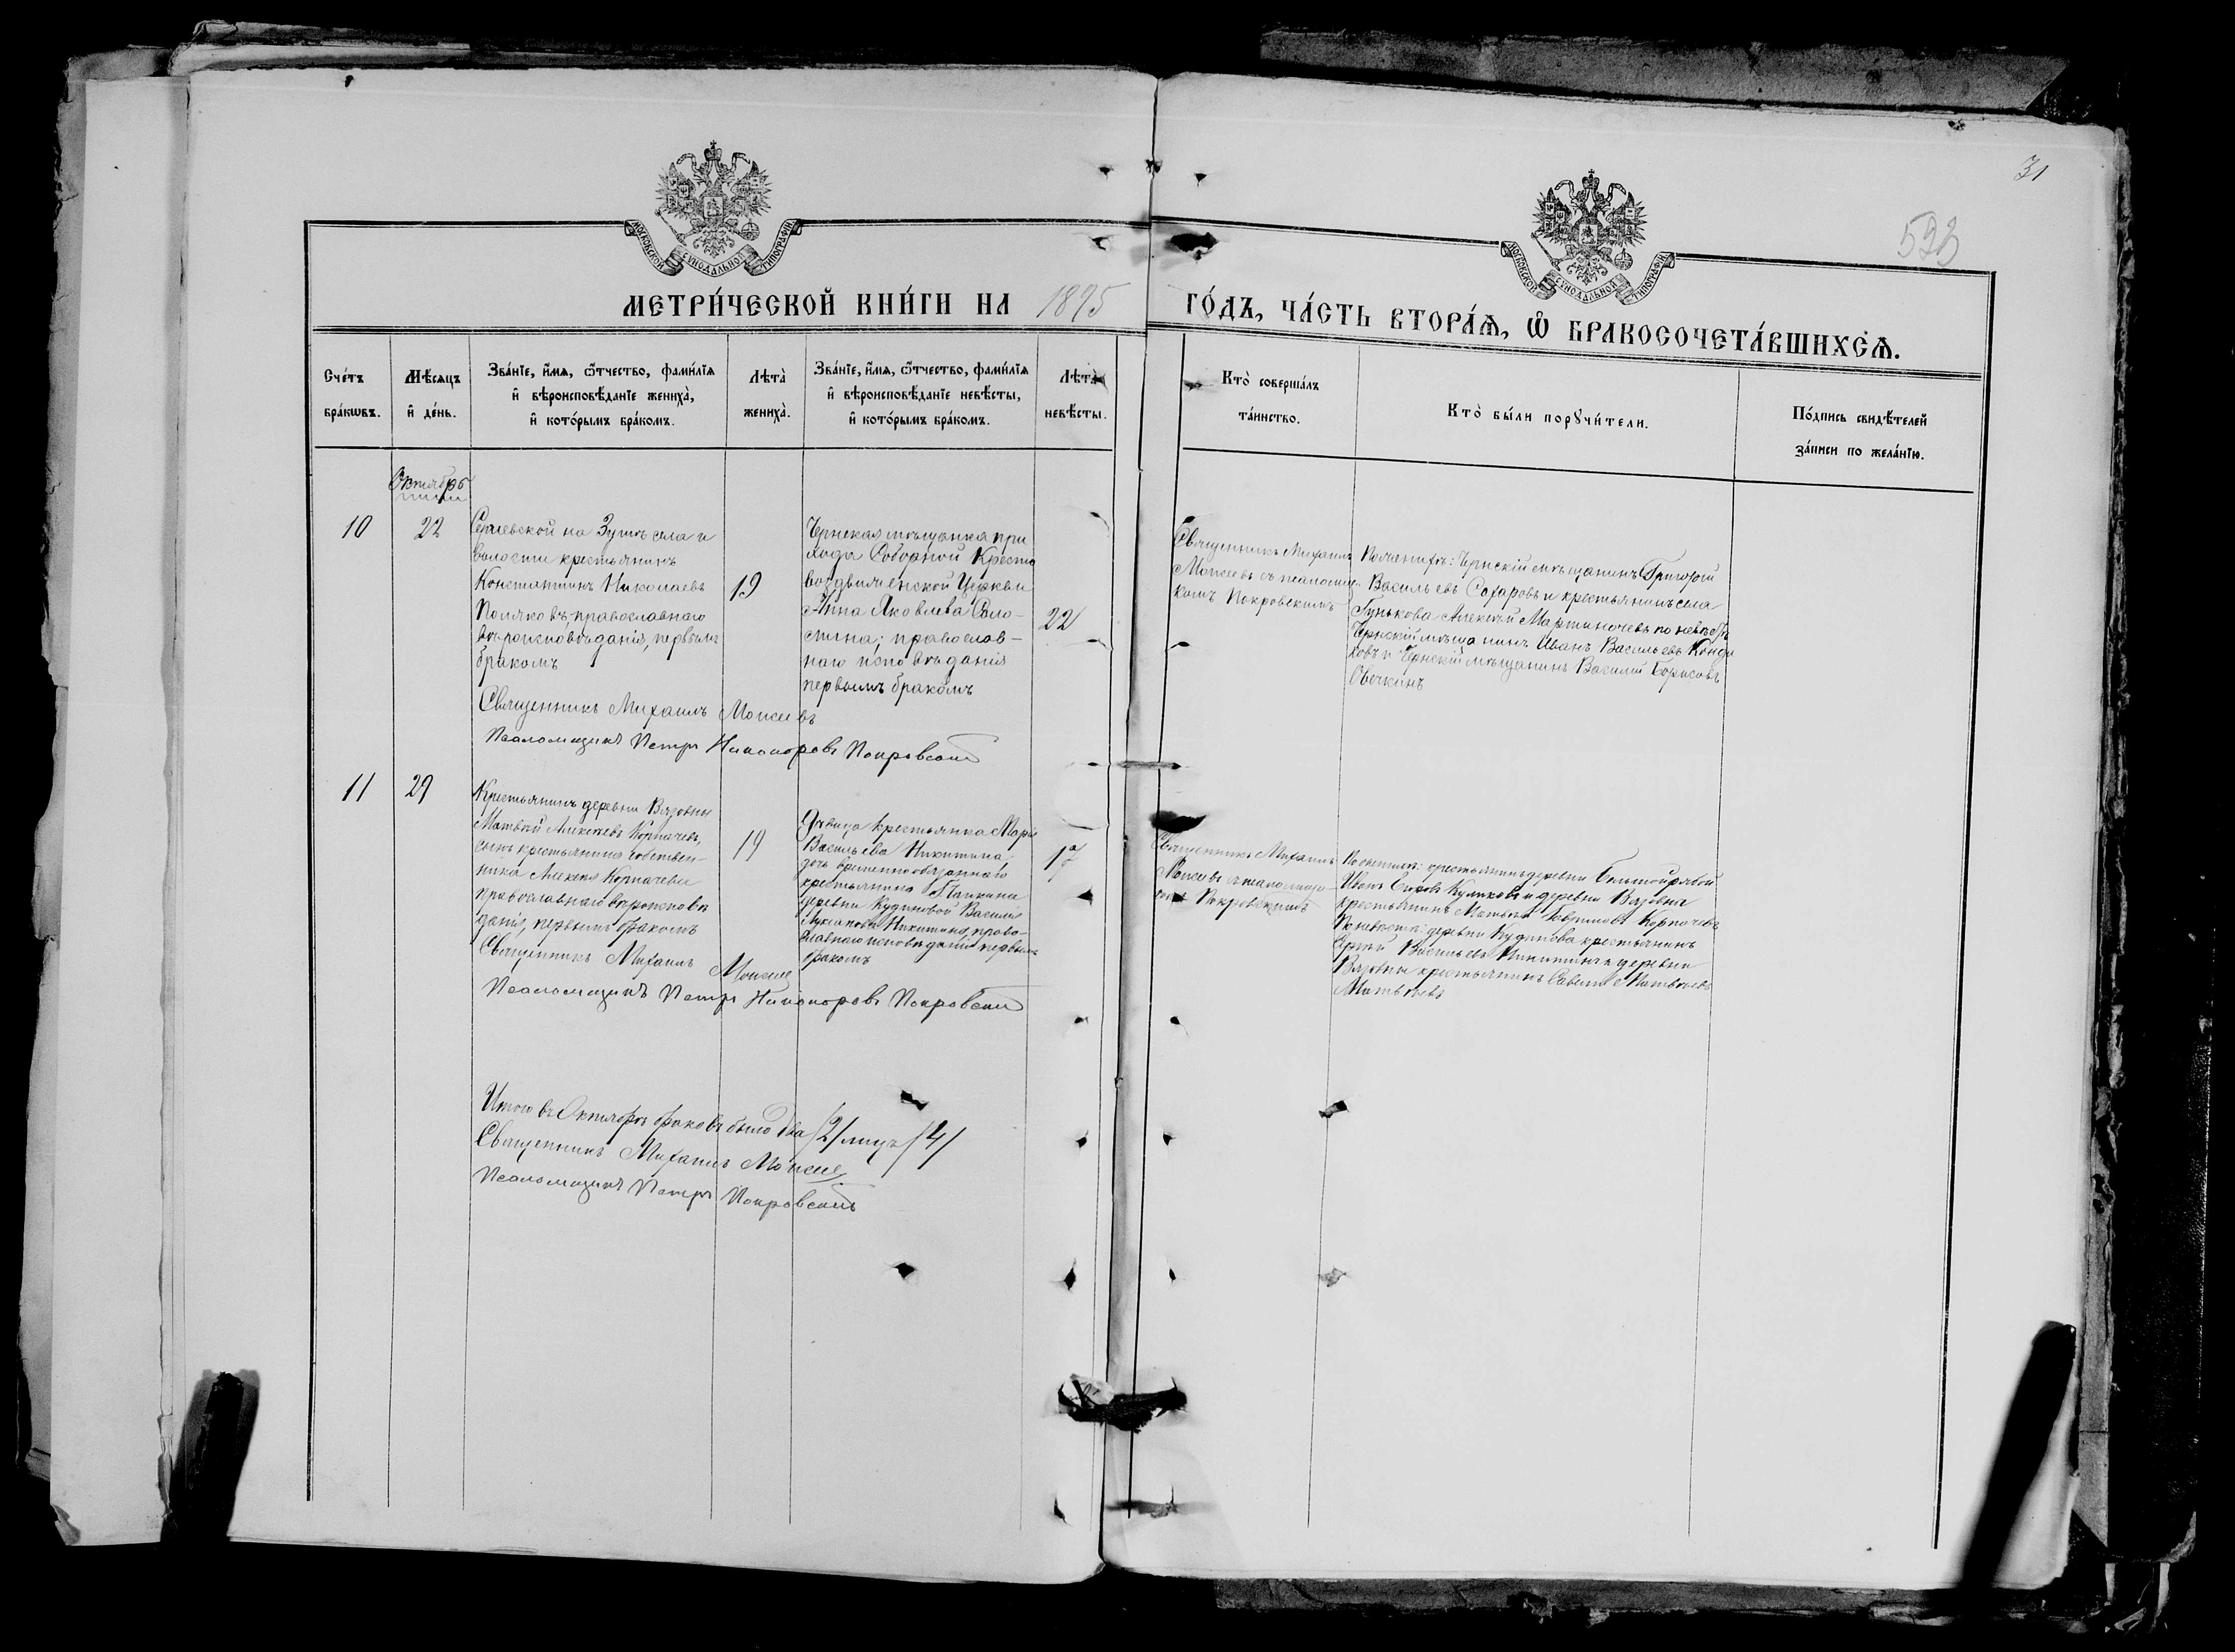 31
593
МОСКОВСКОЙ СУНОДАЛЬНОЙ ТИПОГРАФІИ
МОСКОВСКОЙ СУНОДАЛЬНОЙ ТИПОГРАФІИ
МЕТРИ́ЧЕСКОЙ КНИ́ГИ НА 1895 ГО́ДЪ, ЧА́СТЬ ВТОРА́Ѧ, Ѽ БРАКОСОЧЕТА́ВШИХСѦ.
Сче́тъ бра́кѡвъ.
Мѣ́сяцъ и҆ де́нь.
Зва́нїе, и҆́мя, ѻ҆́тчество, фами́лїя
и҆ вѣроисповѣ́данїе жениха̀,
и҆ кото́рымъ бра́комъ.
Лѣта̀ жениха̀.
Зва́нїе, и҆́мя, ѻ҆́тчество, фами́лїя
и҆ вѣроисповѣ́данїе невѣ́сты,
и҆ кото́рымъ бра́комъ.
Лѣта̀ невѣ́сты.
Кто̀ соверша́лъ
та́инство.
Кто̀ бы́ли порꙋчи́тели.
По́дпись свидѣ́телей
за́писи по жела́нїю.
Октябрь
10
22
Сергіевской на Зушѣ села и
волости крестьянинъ
Константинъ Николаевъ
Поляковъ, православнаго
вѣроисповѣданія, первымъ
бракомъ
19
Чернская мѣщанка при
хода Соборной Кресто
воздвиженской Церкви
Анна Яковлева Соло-
мина; православ-
наго исповѣданія
первымъ бракомъ
22
Священникъ Михаилъ
Моисеевъ съ псаломщи-
комъ Покровскимъ
По женихѣ: Чернскій мѣщанинъ Григорій
Васильевъ Сахаровъ и крестьянинъ села
Гунькова Алексѣй Мартиночевъ по невѣстѣ
Чернскій мѣщанинъ Иванъ Васильевъ Конди
ковъ и Чернскій мѣщанинъ Василій Борисовъ
Овечкинъ
Священникъ Михаилъ Моисеевъ
Псаломщикъ Петръ Никоноровъ Покровскій
11
29
Крестьянинъ деревни Вязовны
Матвѣй Алексѣевъ Корпачевъ,
сынъ крестьянина собствен-
ника Алексѣя Корпачева
православнаго вѣроисповѣ
данія, первымъ бракомъ
19
Дѣвица крестьянка Марія
Васильева Никитина,
дочь временнообязаннаго
крестьянина
деревни Кудиновой Василія
Никитина, право-
славнаго исповѣданія первымъ
бракомъ
17
Священникъ Михаилъ
Моисеевъ съ псаломщи-
комъ Покровскимъ
По женихѣ: крестьянинъ деревни
Иванъ Куликовъ и деревни Вязовны
крестьянинъ Матвѣй Гавриловъ Корпачевъ
По невѣстѣ: деревни Кудинова крестьянинъ
Сергѣй Васильевъ Никитинъ и деревни
Вязовны крестьянинъ Савелій Матвѣевъ
Матвѣевъ
Священникъ Михаилъ Моисеевъ
Псаломщикъ Петръ Никоноровъ Покровскій
Итого въ Октябрѣ браковъ было два /2/ лицъ /4/
Священникъ Михаилъ Моисеевъ
Псаломщикъ Петръ Покровскій